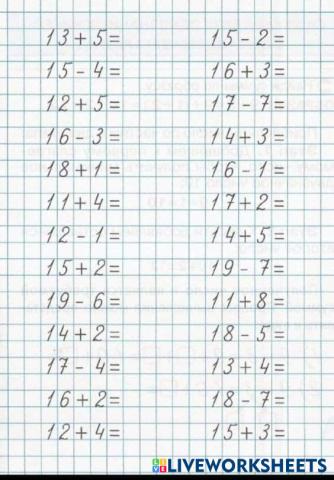 13+5= 15-2=
15-4= 16+3=
12+5= 17-7=
16-3= 14+3=
18+1= 16-1=
11+4= 17+2=
12-1= 14+5=
15+2= 19-7=
19-6= 11+8=
14+2= 18-5=
17-4= 13+4=
16+2= 18-7=
12+4= 15+3=
LIVEWORKSHEETS